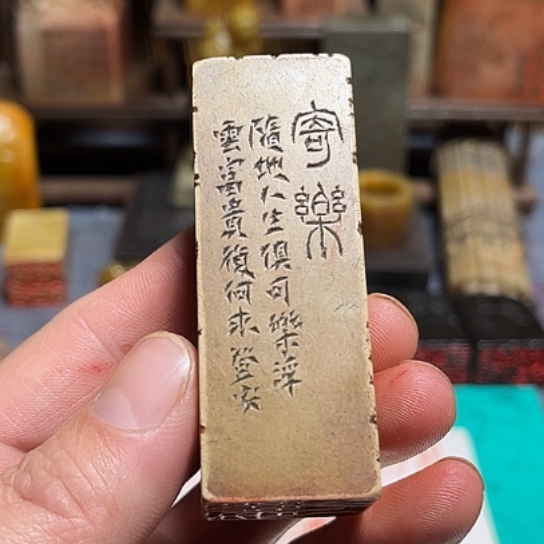 寄樂
隨地人生俱可樂浮
雲富貴復何求登安